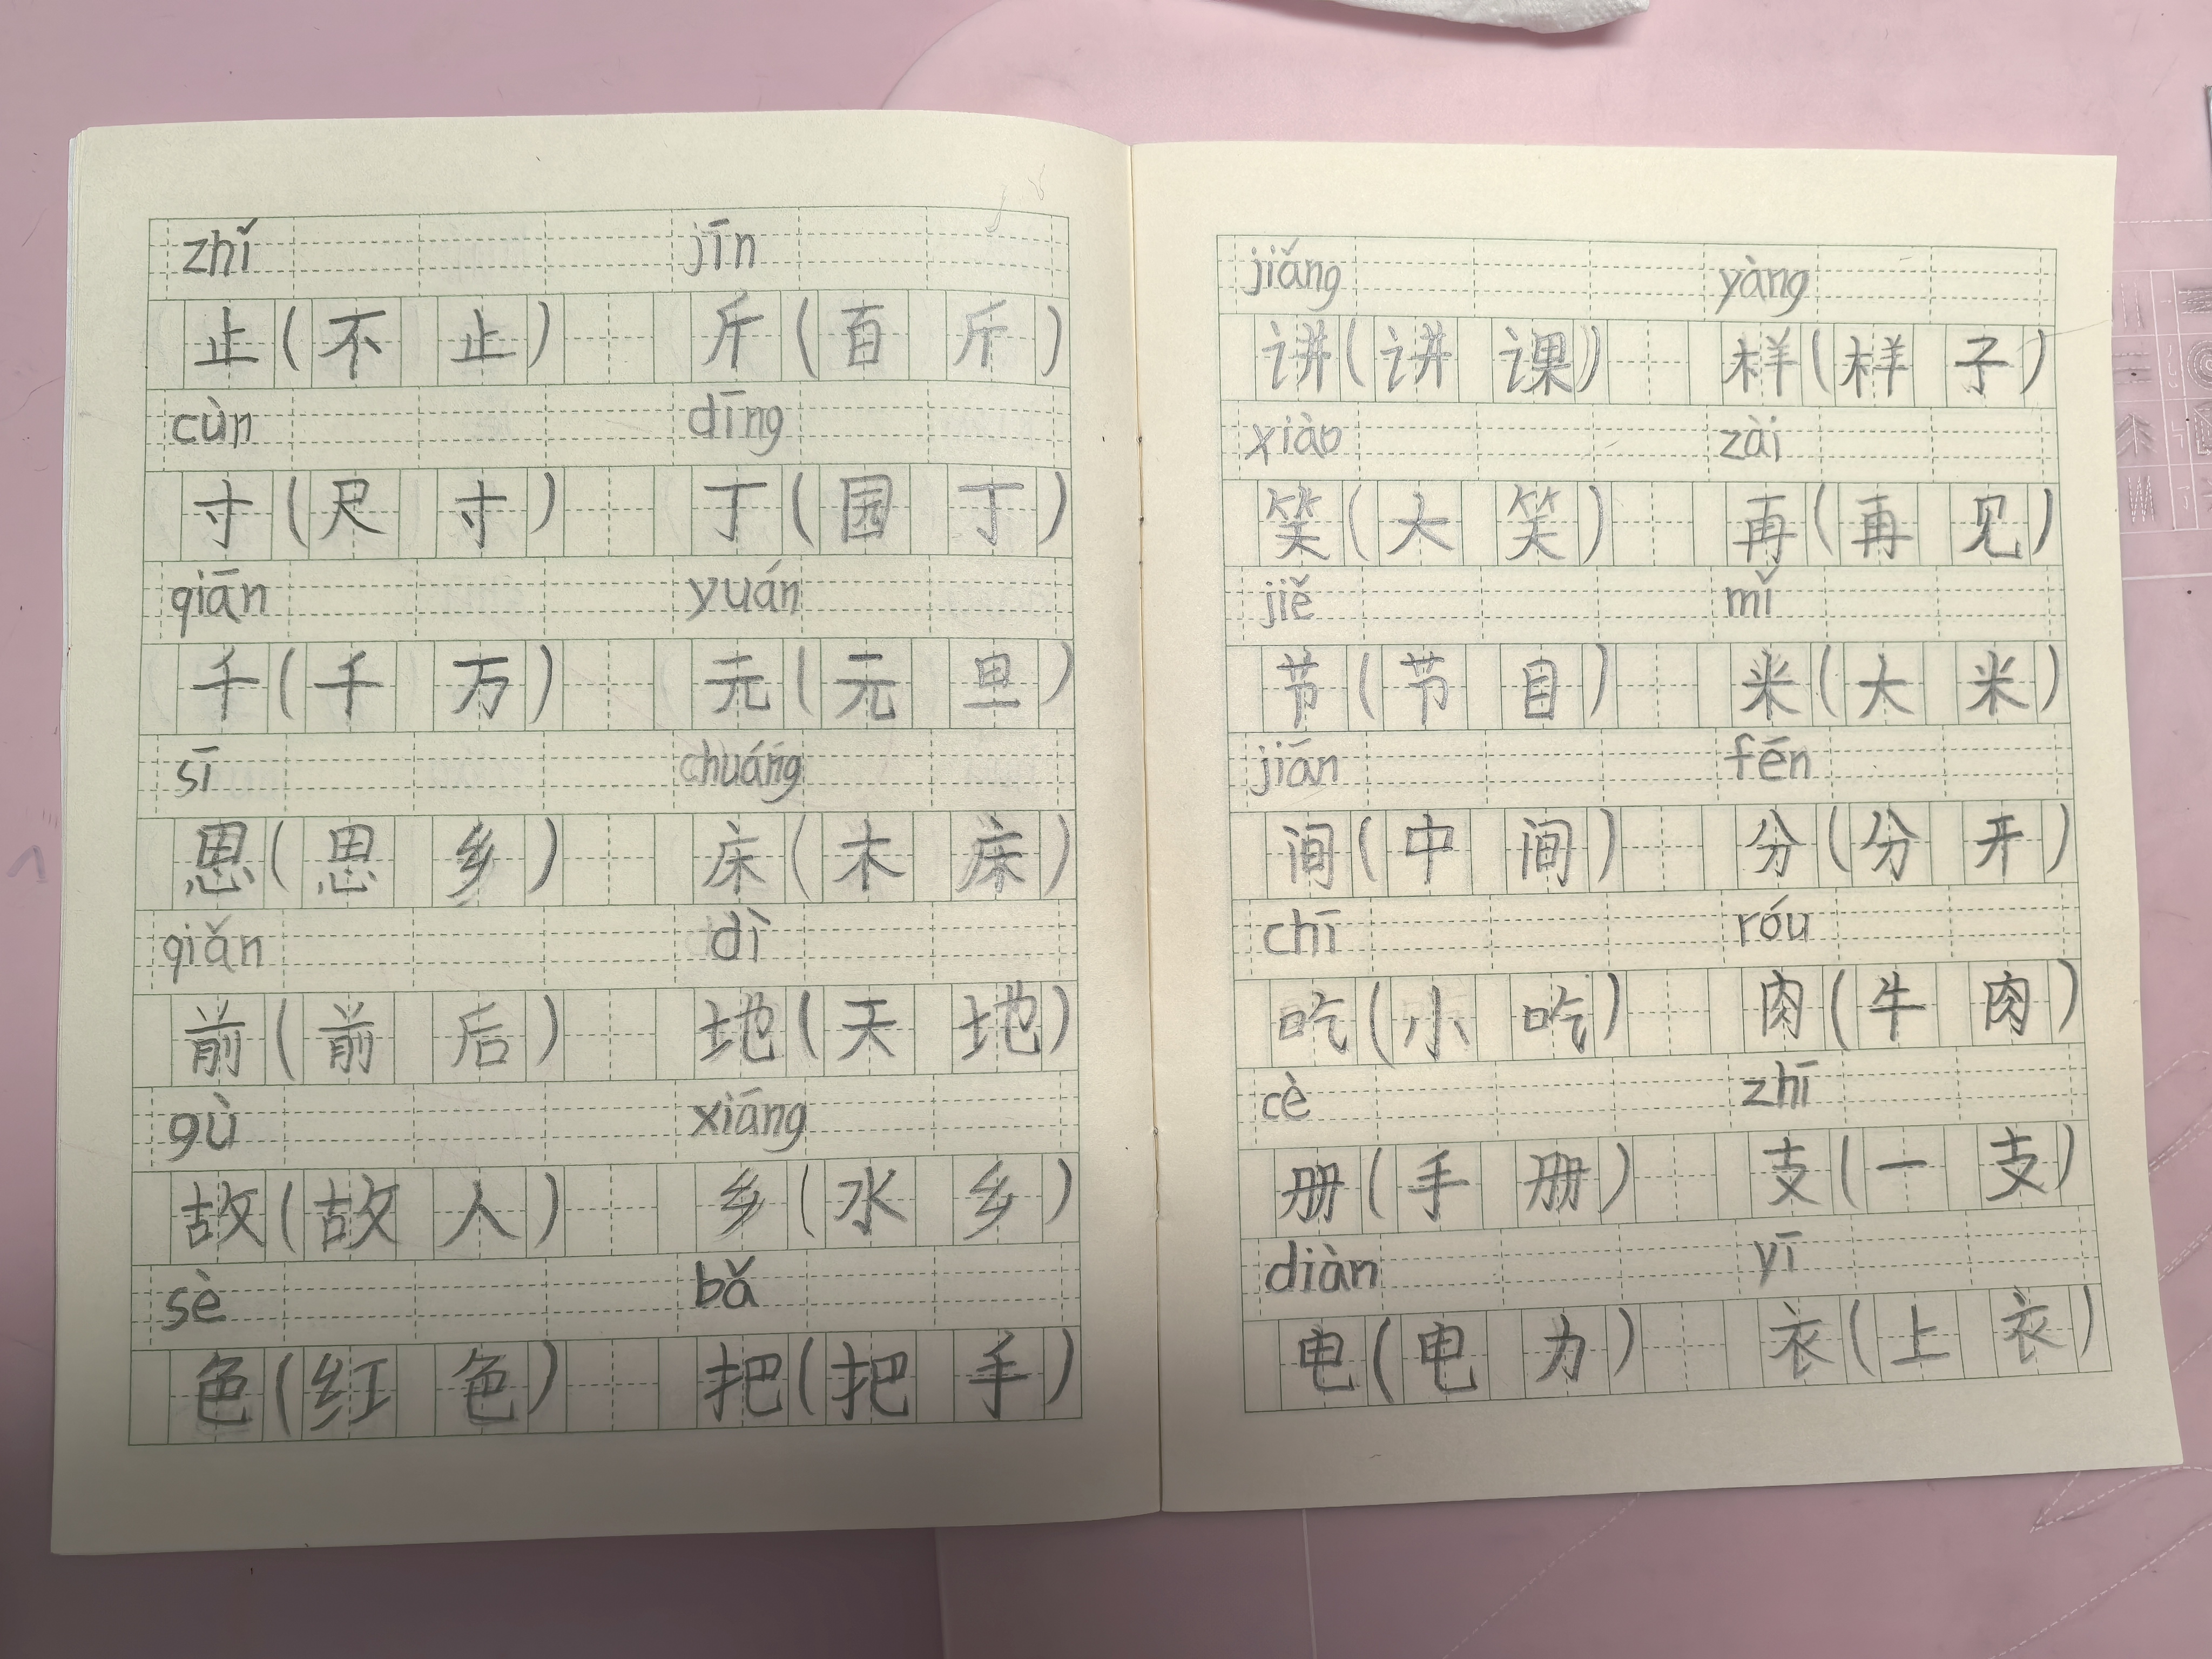 zhǐ jīn
止(不止) 斤(百斤)
cùn dīng
寸(尺寸) 丁(园丁)
qiān yuán
千(千万) 元(元旦)
sī chuáng
思(思乡) 床(木床)
qiǎn dì
前(前后) 地(天地)
gù xiáng
故(故人) 乡(水乡)
sè bǎ
色(红色) 把(把手)
jiǎng yàng
讲(讲课) 样(样子)
xiào zài
笑(大笑) 再(再见)
jiě mǐ
节(节目) 米(大米)
jiān fēn
间(中间) 分(分开)
chī róu
吃(小吃) 肉(牛肉)
cè zhī
册(手册) 支(一支)
diàn yī
电(电力) 衣(上衣)